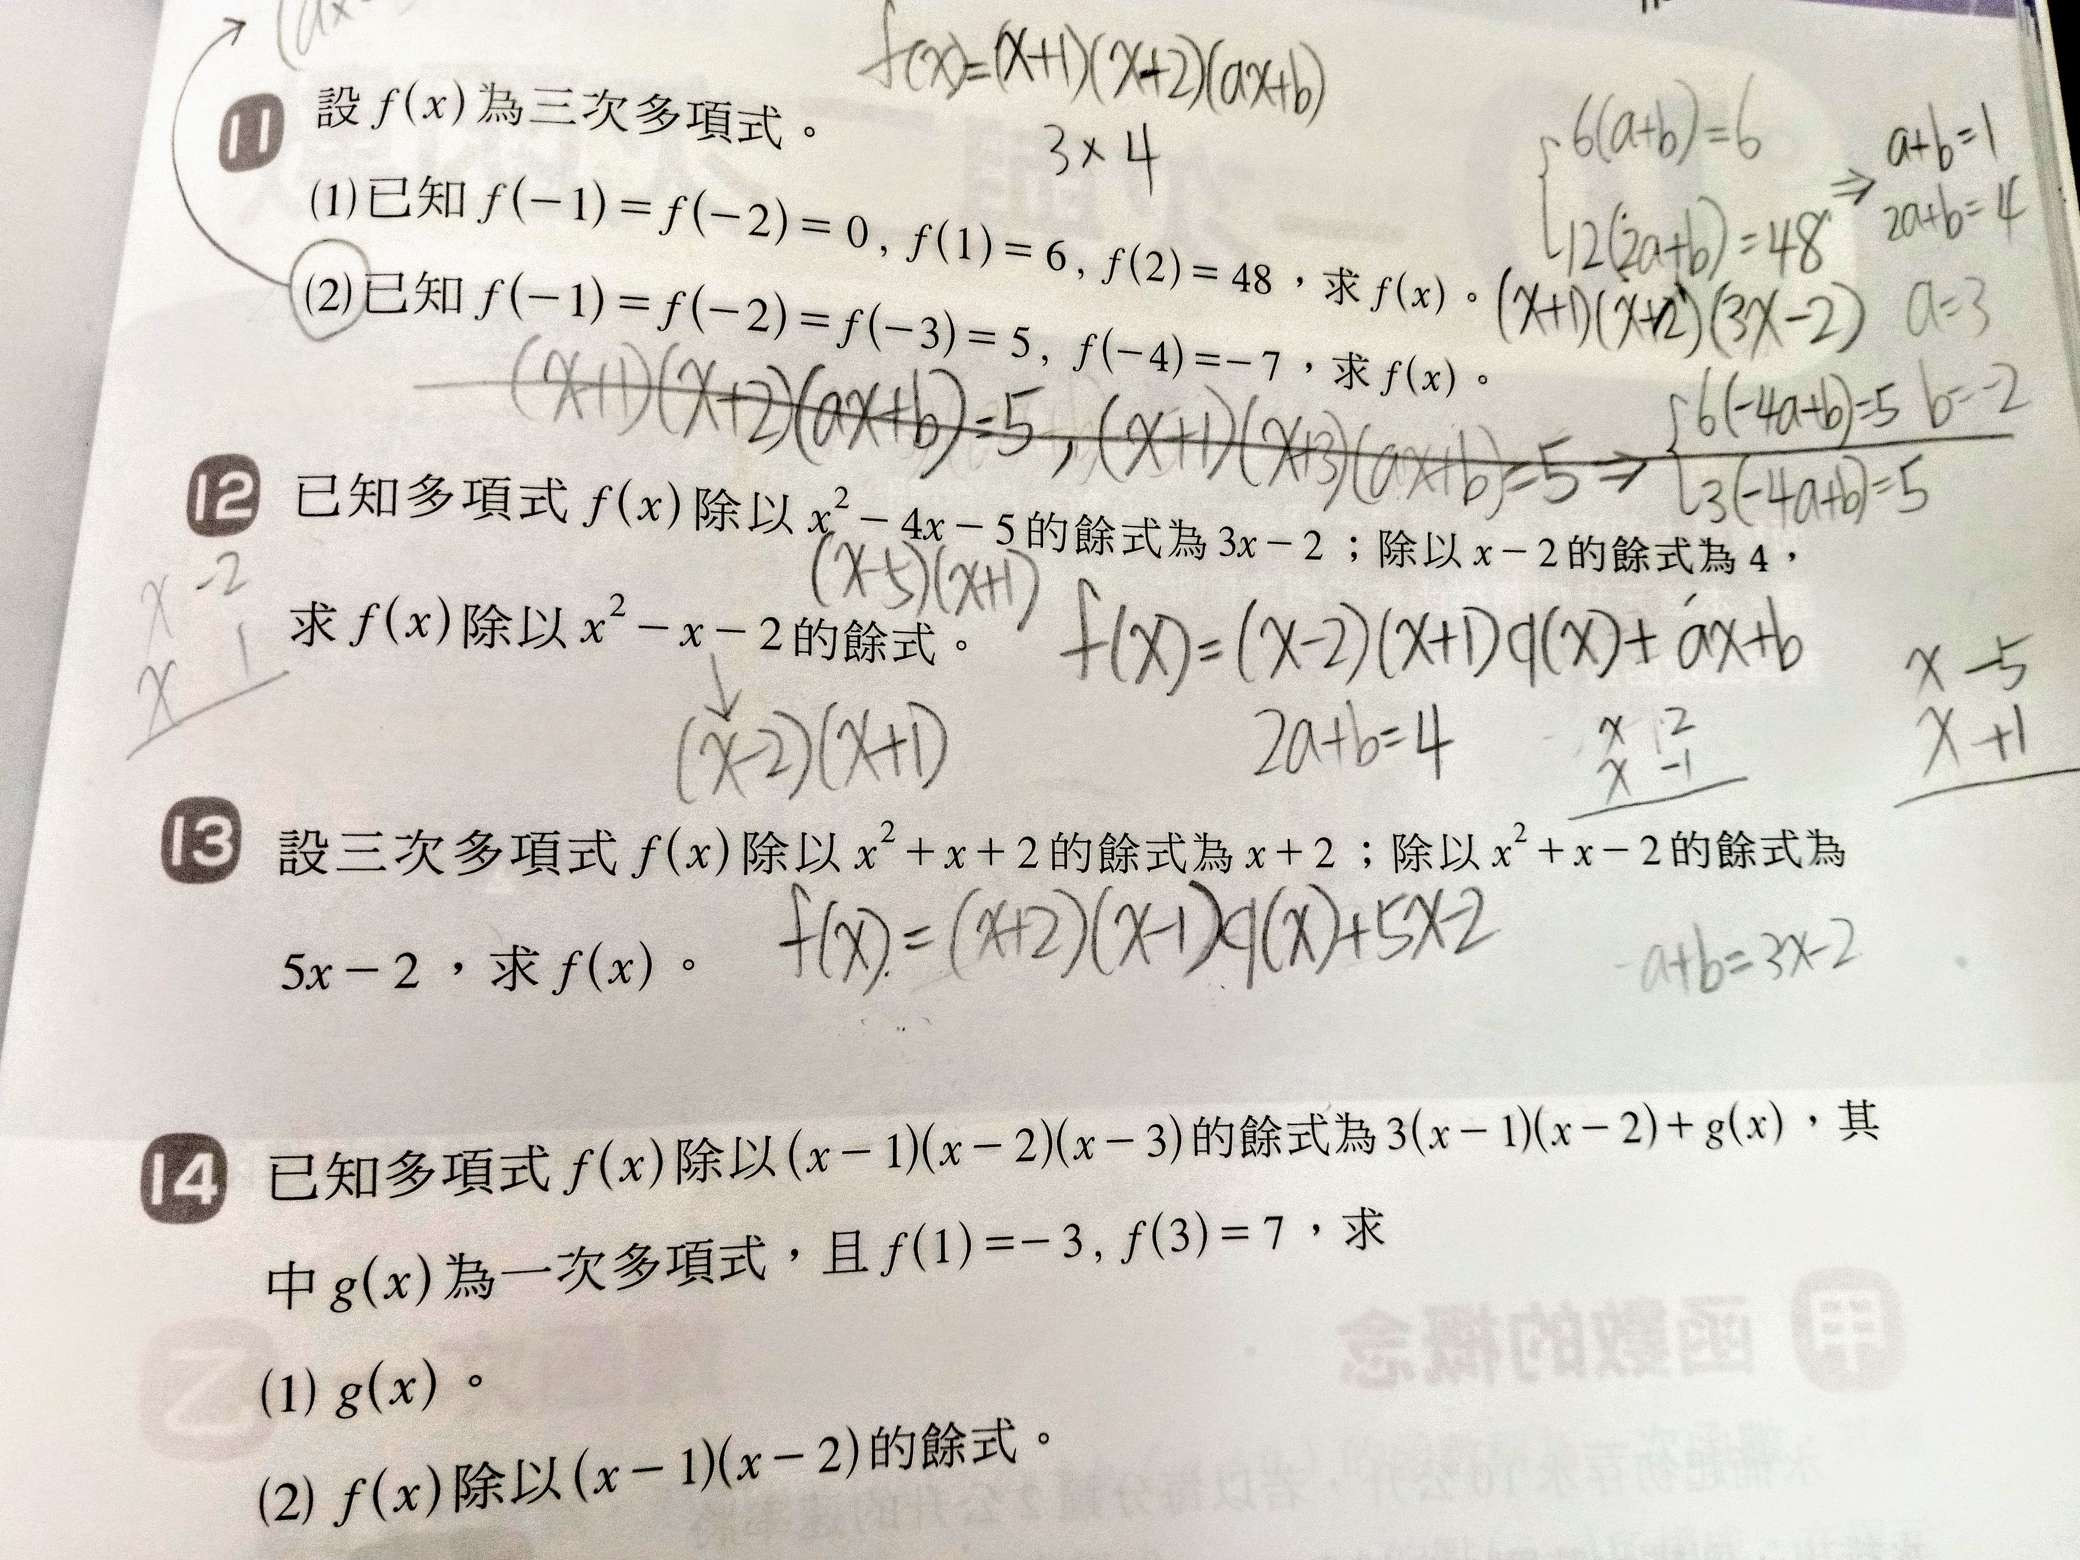 (ax
f(x)=(x+1)(x+2)(ax+b)
3×4
11 設 f(x) 為三次多項式。
(1)已知 f(−1)=f(−2)=0, f(1)=6, f(2)=48，求 f(x)。
(2)已知 f(−1)=f(−2)=f(−3)=5, f(−4)=−7，求 f(x)。
6(a+b)=6
12(2a+b)=48
⇒ a+b=1
2a+b=4
(x+1)(x+2)(3x−2)
a=3
b=−2
(x+1)(x+2)(ax+b)=5, (x+1)(x+3)(ax+b)=5 ⇒ 6(−4a+b)=5
3(−4a+b)=5
12 已知多項式 f(x) 除以 x²−4x−5 的餘式為 3x−2；除以 x−2 的餘式為 4，
(x−5)(x+1)
求 f(x) 除以 x²−x−2 的餘式。
f(x)=(x−2)(x+1)q(x)+ax+b
x −2
x 1
↓
(x−2)(x+1)
2a+b=4
x 2
x −1
x −5
x +1
13 設三次多項式 f(x) 除以 x²+x+2 的餘式為 x+2；除以 x²+x−2 的餘式為
5x−2，求 f(x)。
f(x)=(x+2)(x−1)q(x)+5x−2
−a+b=3x−2
14 已知多項式 f(x) 除以 (x−1)(x−2)(x−3) 的餘式為 3(x−1)(x−2)+g(x)，其
中 g(x) 為一次多項式，且 f(1)=−3, f(3)=7，求
(1) g(x)。
(2) f(x) 除以 (x−1)(x−2) 的餘式。
甲 函數的概念
乙